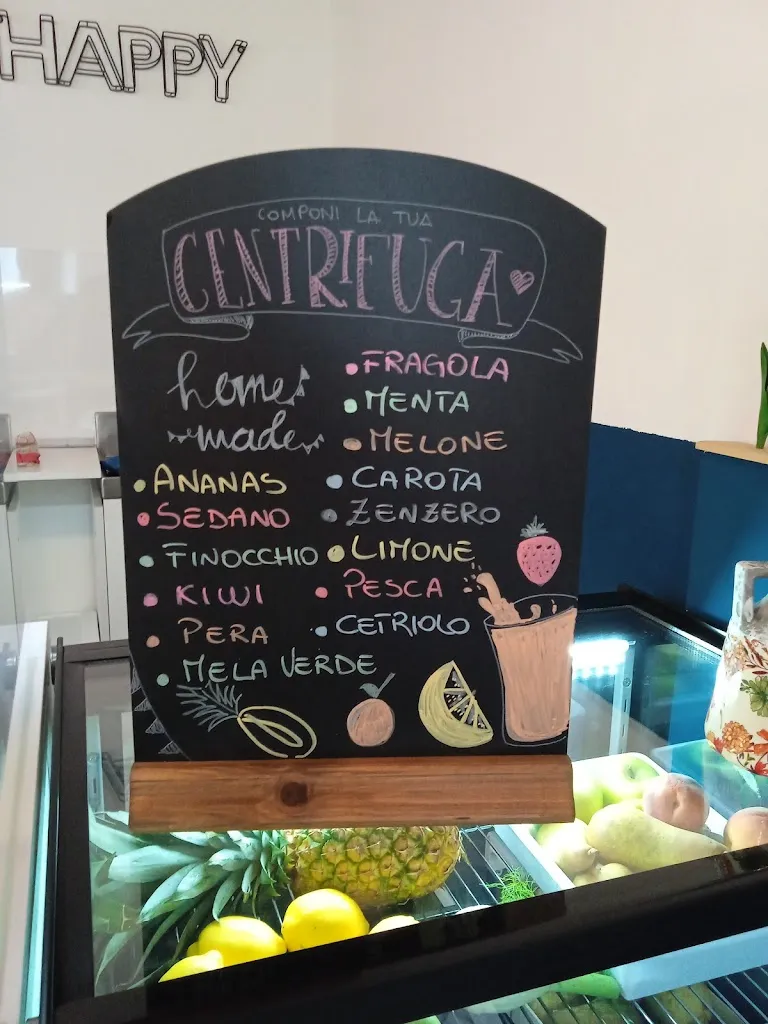 HAPPY
COMPONI LA TUA
CENTRIFUGA
home
made
ANANAS
SEDANO
FINOCCHIO
KIWI
PERA
MELA VERDE
FRAGOLA
MENTA
MELONE
CAROTA
ZENZERO
LIMONE
PESCA
CETRIOLO